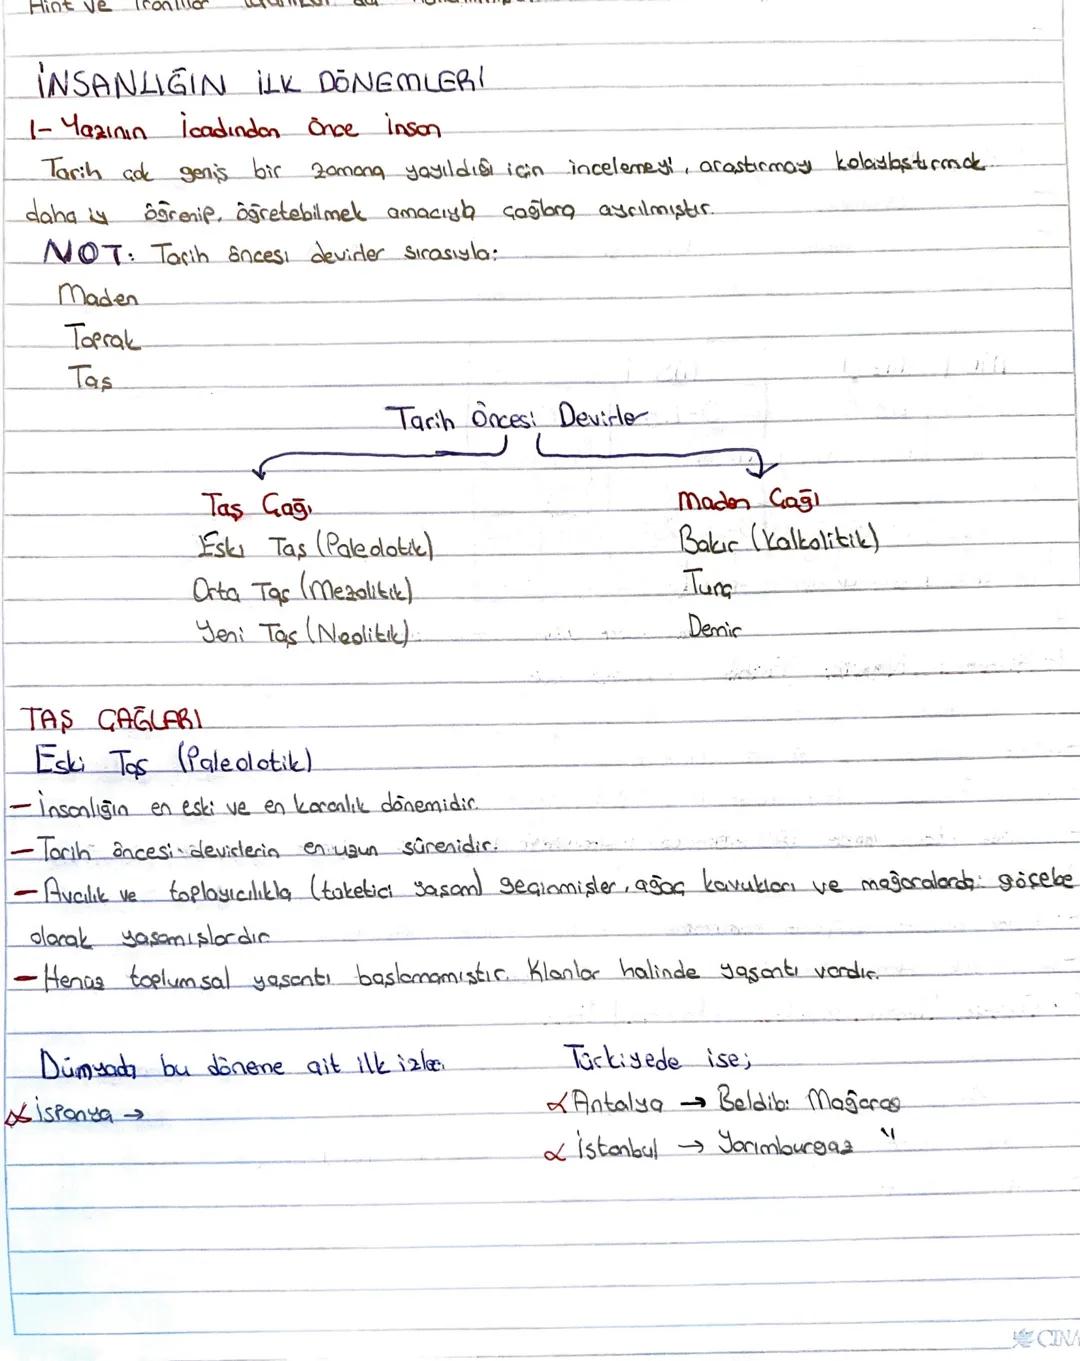 Hint ve İranlılar
İNSANLIĞIN İLK DÖNEMLERİ
1- Yazının İcadından Önce İnsan
Tarih çok geniş bir zamana yayıldığı için incelemeyi, araştırmayı kolaylaştırmak
daha iyi öğrenip, öğretebilmek amacıyla çağlara ayrılmıştır.
NOT: Tarih öncesi devirler sırasıyla:
Maden
Toprak
Taş
Tarih Öncesi Devirler
Taş Çağı
Maden Çağı
Eski Taş (Paleolotik)
Bakır (Kalkolitik)
Orta Taş (Mezolitik)
Tunç
Yeni Taş (Neolitik)
Demir
TAŞ ÇAĞLARI
Eski Taş (Paleolotik)
- İnsanlığın en eski ve en karanlık dönemidir.
- Tarih öncesi devirlerin en uzun sürenidir.
- Avcılık ve toplayıcılıkla (tüketici yaşam) geçinmişler, ağaç kavukları ve mağaralarda göçebe
olarak yaşamışlardır
- Henüz toplumsal yaşantı başlamamıştır. Klanlar halinde yaşantı vardır.
Dünyada bu döneme ait ilk izler
Türkiyede ise;
α İspanya →
α Antalya → Beldibi Mağarası
α İstanbul → Yarımburgaz "
CINA